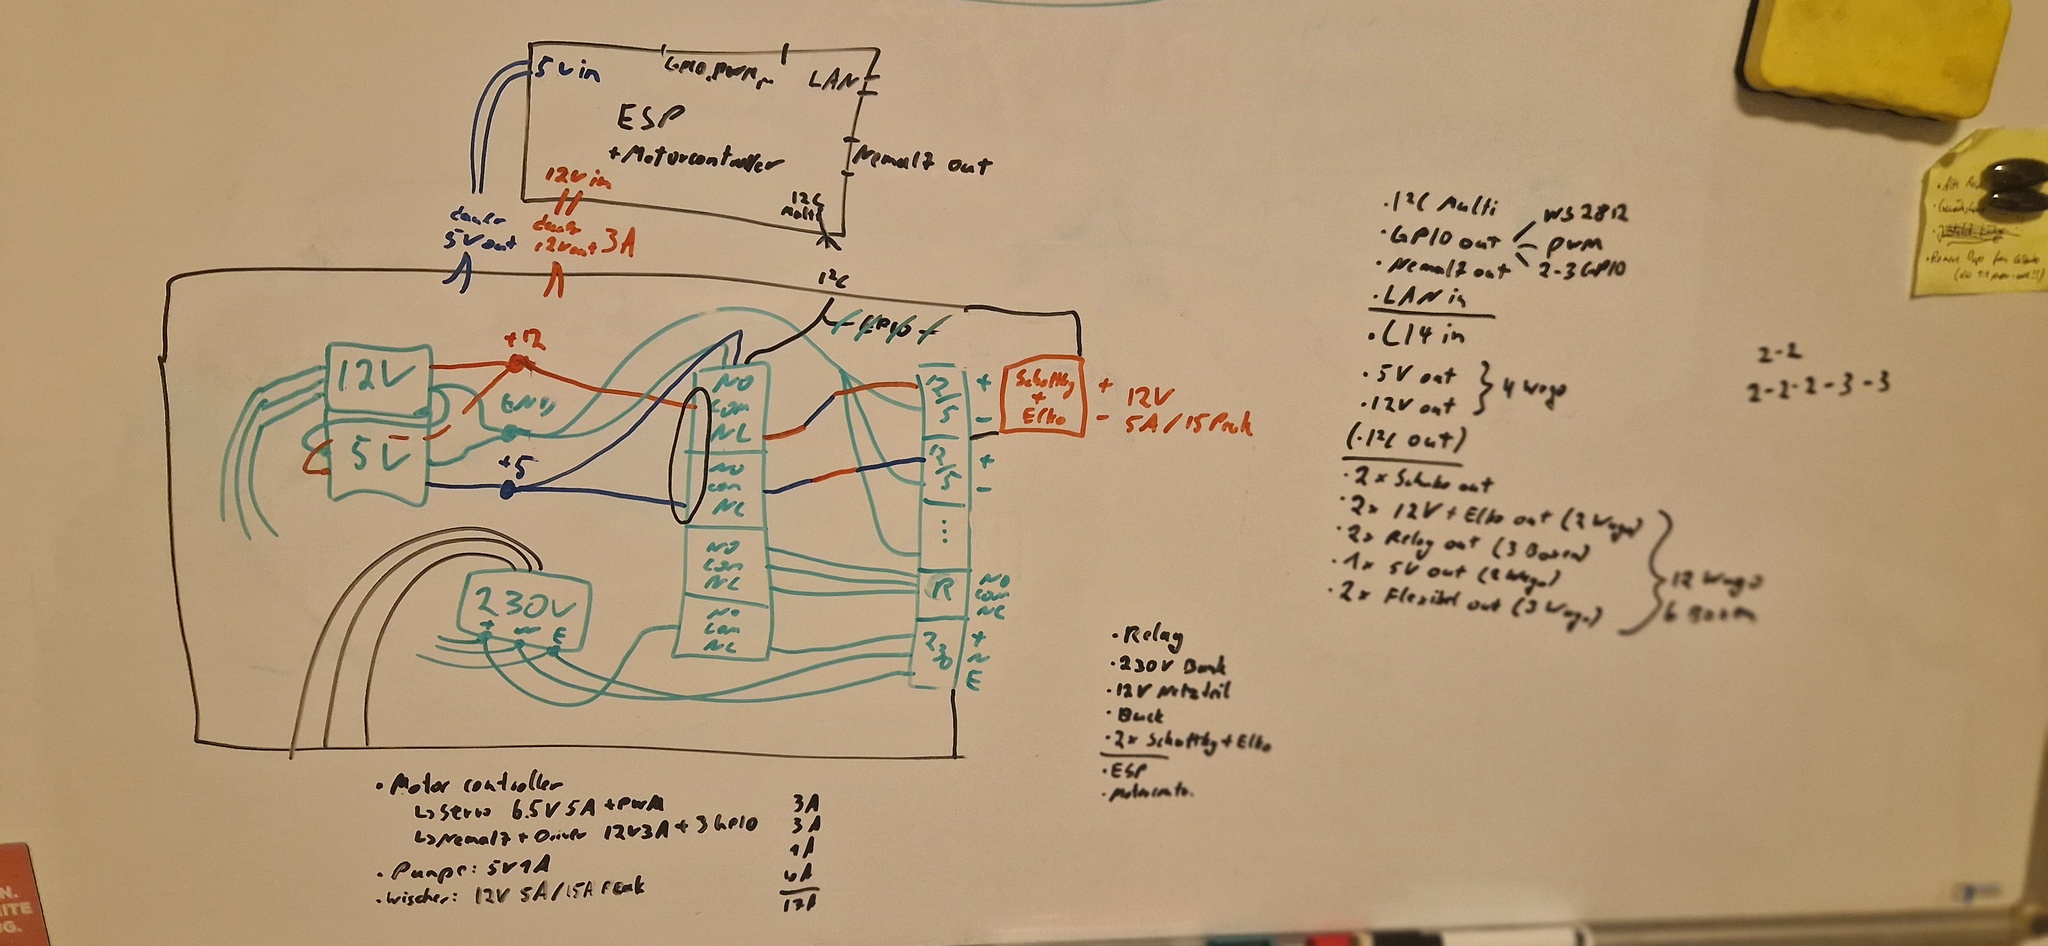 5V in
GPIO, PWM,
LAN
ESP
+Motorcontroller
Nema17 out
12V in
I2C
Multi
dauer
5V out
dauer
12V out 3A
I2C
GPIO
+12
12V
GND
5V
+5
NO
COM
NC
NO
COM
NC
NO
COM
NC
NO
COM
NC
12/5
+
-
12/5
+
-
⋮
R
NO
COM
NC
230
+
N
E
Schottky
+
Elko
+ 12V
- 5A/15Peak
230V
+ N E
• Motor controller
↳Servo 6.5V 5A +PWM 3A
↳Nema17 + Driver 12V3A + 3 GPIO 3A
• Pumpe: 5V 1A 1A
• Wischer: 12V 5A/15A PEAK
• Relay
• 230V Bank
• 12V Netzteil
• Buck
• 2x Schottky+Elko
• ESP
• Motorcontr.
• I2C Multi
• GPIO out
WS2812
PWM
2-3GPIO
• Nema17 out
• LAN in
• C14 in
• 5V out
• 12V out
4 Wago
(• I2C out)
• 2x Schuko out
• 2x 12V+Elko out (2 Wago)
• 2x Relay out (3 Boxen)
• 1x 5V out (2 Wago)
• 2x Flexibel out (3 Wago)
12 Wago
6 Boxen
2-2
2-2-2-3-3